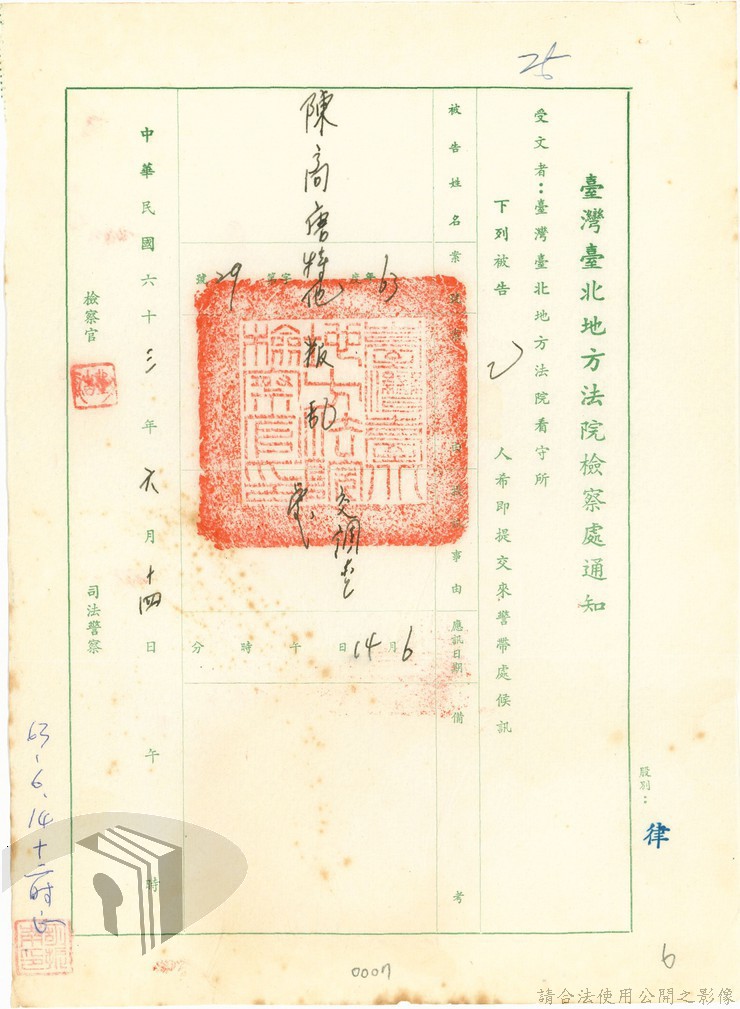 25
臺灣臺北地方法院檢察處通知
受文者：臺灣臺北地方法院看守所
下列被告 乙 人希即提交來警帶處候訊
股別：
律
被告姓名
案號
事由
應訊日期
備考
63 年度 字第 29 號
交調查
6月14日 午 時 分
陳
叛亂
臺灣臺北地方法院檢察官印
中華民國六十三年六月十四日 午 時
檢察官
司法警察
63.6.14十二時
0007
6
請合法使用公開之影像